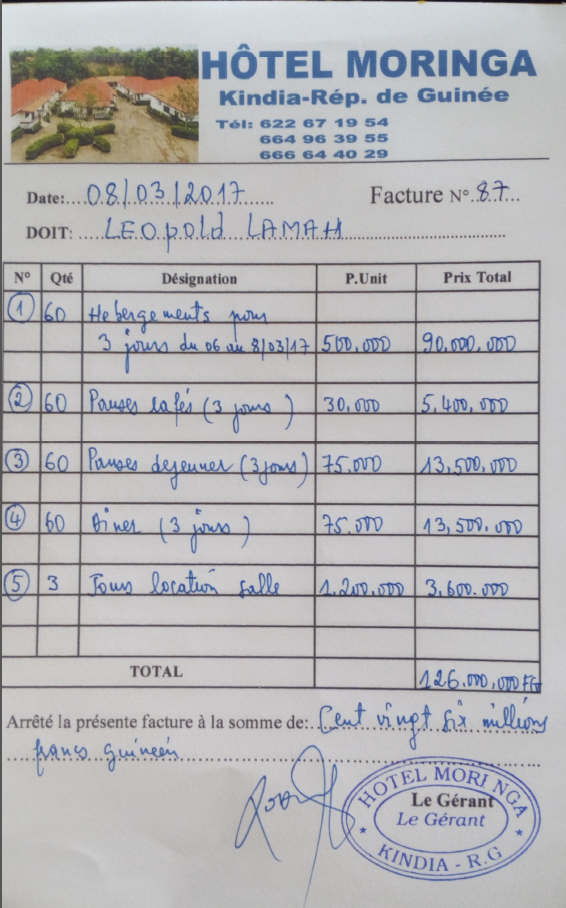 HÔTEL MORINGA
Kindia-Rép. de Guinée
Tél: 622 67 19 54
664 96 39 55
666 64 40 29
Date:....08/03/2017.... Facture N°.87...
DOIT:....LEOpold LAMAH....
N° Qté Désignation P.Unit Prix Total
1 60 Hebergements pour
3 jours du 06 au 8/03/17 500,000 90.000,000
2 60 Pauses cafés (3 jours) 30.000 5,400,000
3 60 Pauses dejeuner (3 jours) 75.000 13,500,000
4 60 Diner (3 jours) 75.000 13,500,000
5 3 Jours location salle 1.200.000 3,600.000
TOTAL 126.000,000 FG
Arrêté la présente facture à la somme de: Cent vingt six millions
francs guinéen
HOTEL MORI NGA
Le Gérant
Le Gérant
KINDIA - R.G